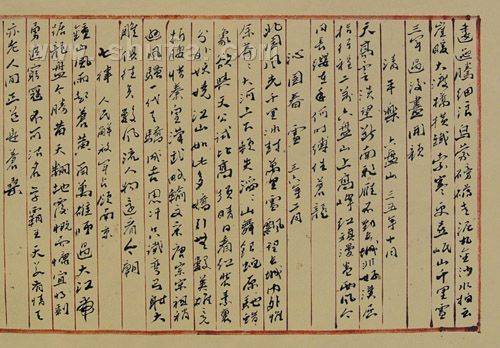 逶迤騰細浪烏蒙磅礴走泥丸金沙水拍雲
崖暖大渡橋橫鐵索寒更喜岷山千里雪
三軍過後盡開顏
清平樂 六盤山 三五年十月
天高雲淡望斷南飛雁不到長城非好漢屈
指行程二萬六盤山上高峰紅旗漫卷西風今
日長纓在手何時縛住蒼龍
沁園春 雪 三六年二月
北國風光千里冰封萬里雪飄望長城內外惟
余莽莽大河上下頓失滔滔山舞銀蛇原馳蠟
象欲與天公試比高須晴日看紅裝素裹
分外妖嬈江山如此多嬌引無數英雄競
折腰惜秦皇漢武略輸文采唐宗宋祖稍
遜風騷一代天驕成吉思汗只識彎弓射大
雕俱往矣數風流人物還看今朝
七律 人民解放軍占領南京
鐘山風雨起蒼黃百萬雄師過大江虎
踞龍盤今勝昔天翻地覆慨而慷宜將剩
勇追窮寇不可沽名學霸王天若有情天
亦老人間正道是蒼桑